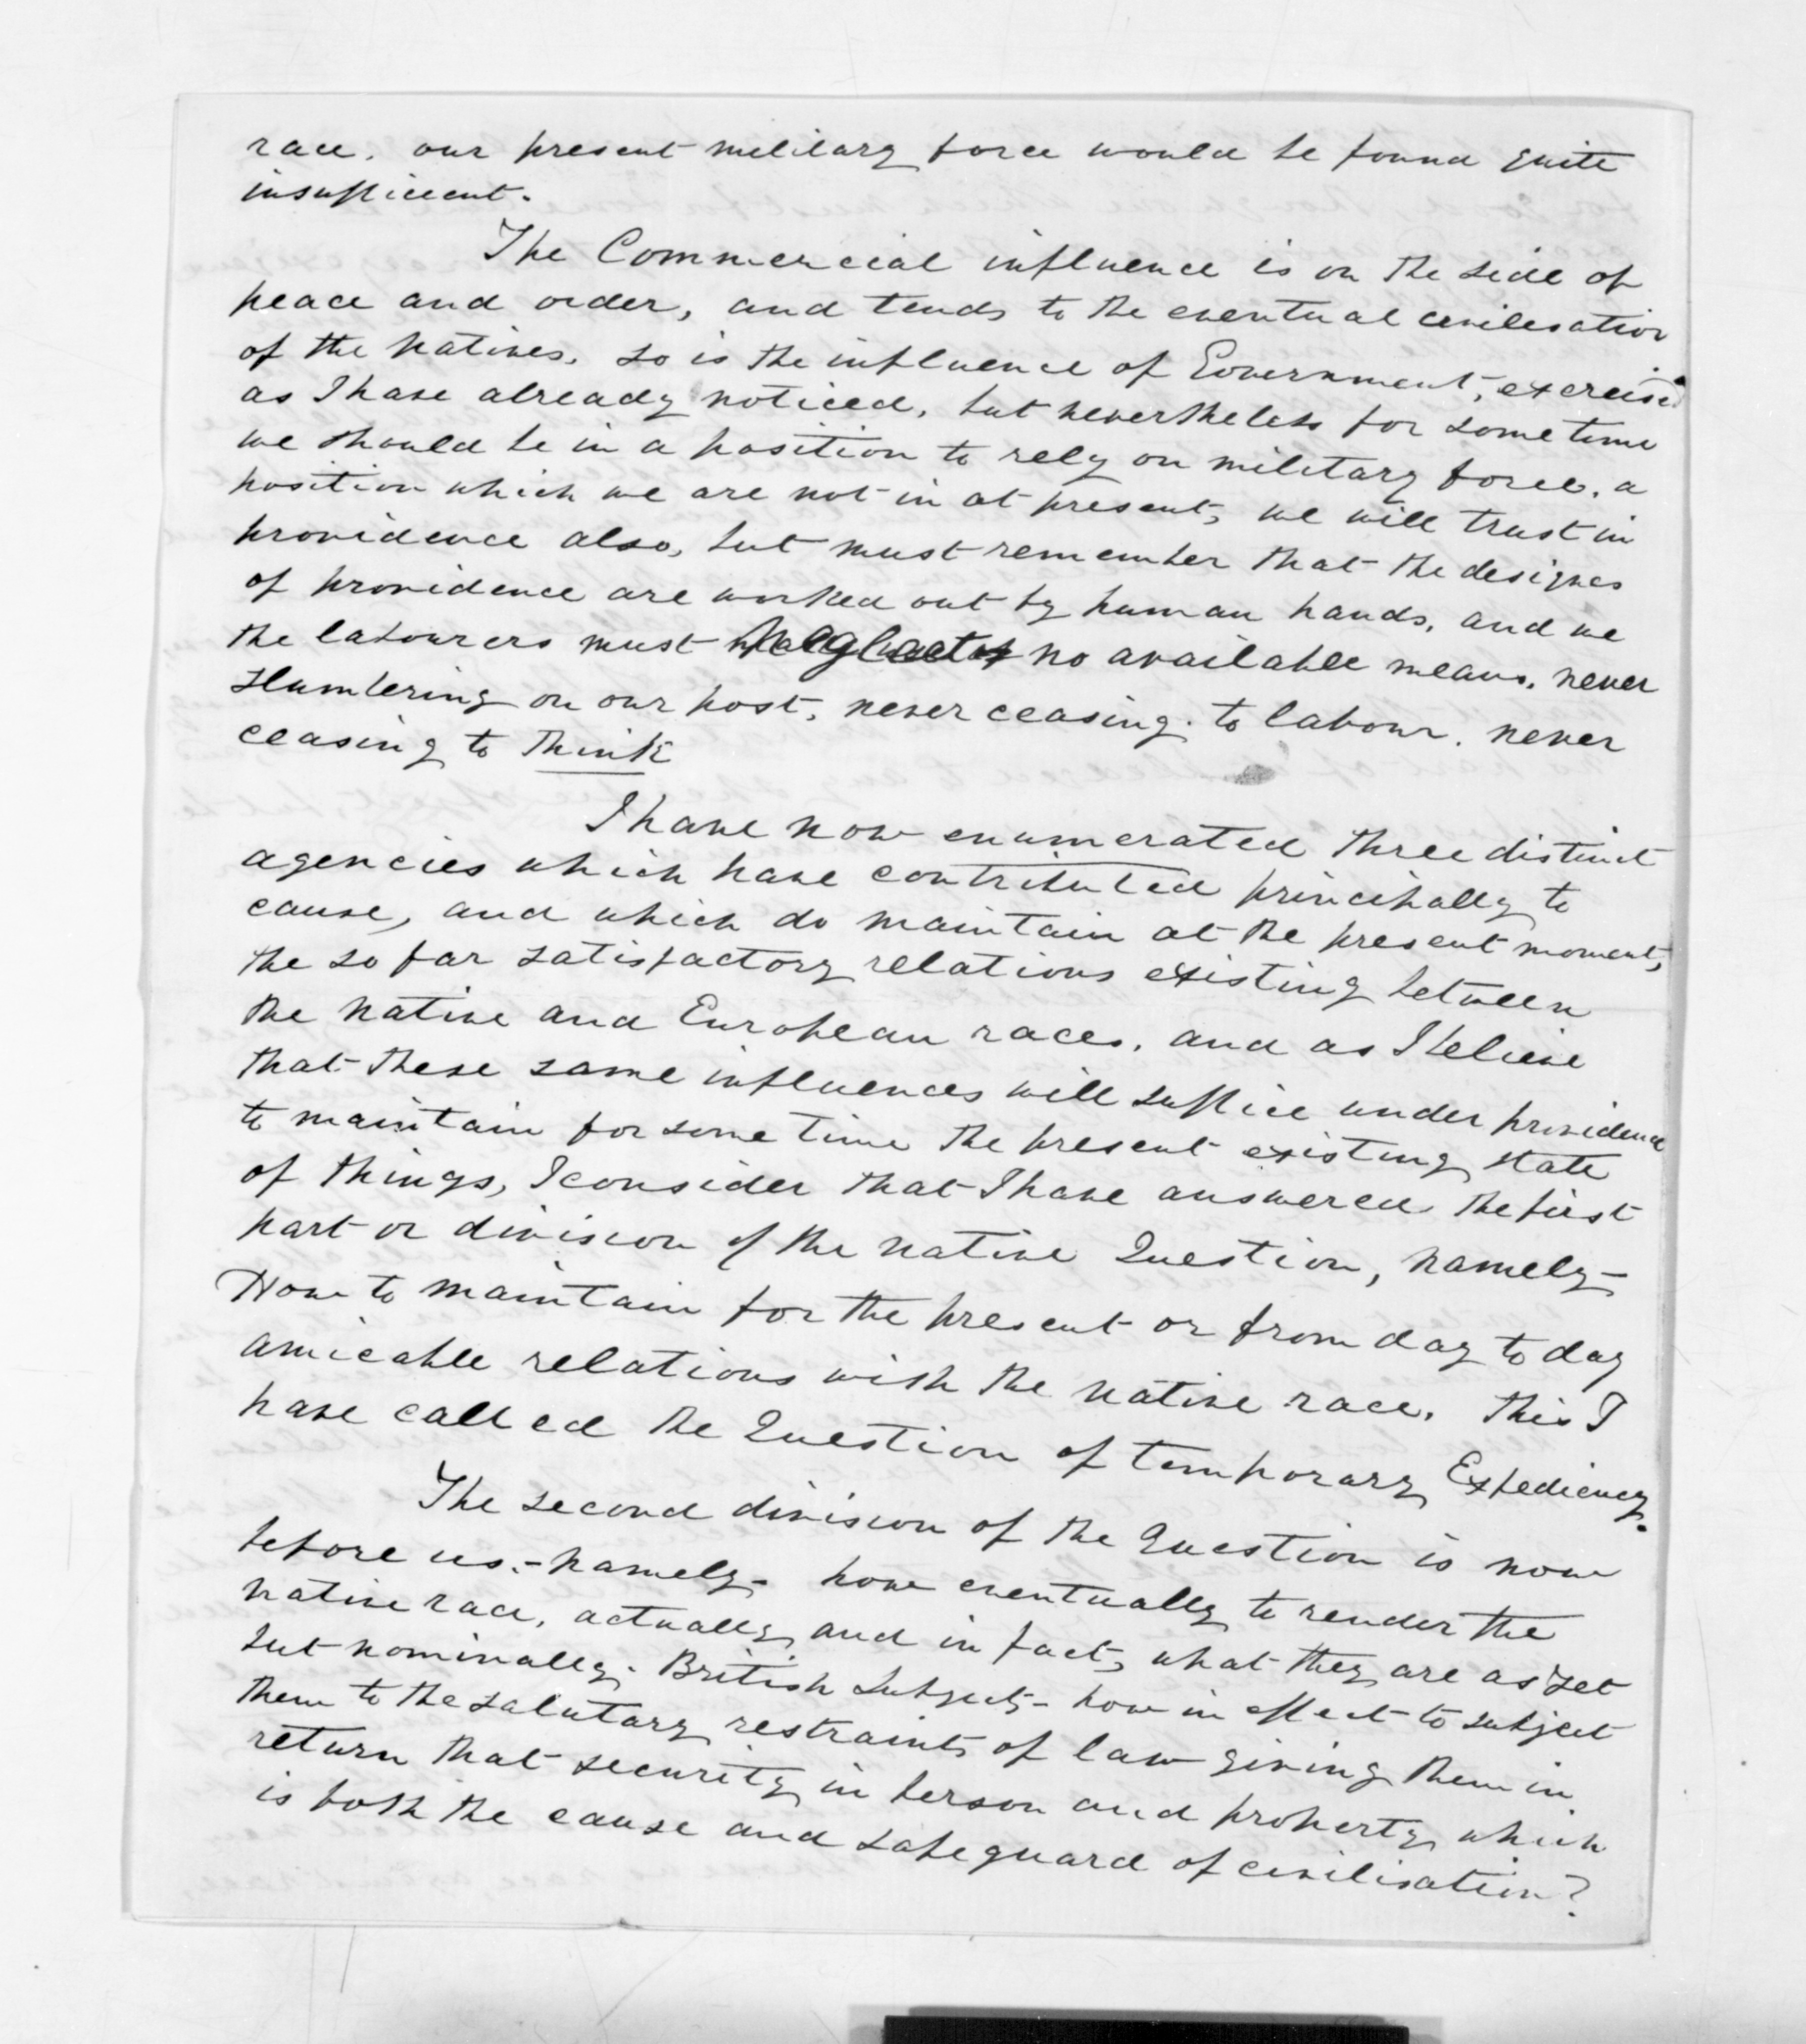 race. our present military force would be found quite
insufficient.
The Commercial influence is on the side of
peace and order, and tends to the eventual civilisation
of the natives. so is the influence of Government, exercised
as I have already noticed. but nevertheless for some time
we should be in a position to rely on military force. a
position which we are not in at present, we will trust in
providence also, but must remember that the designes
of providence are worked out by human hands. and we
the labourers must neglect no available means. never
slumbering on our post. never ceasing to labour. never
ceasing to think
I have now enumerated three distinct
agencies which have contributed principally to
cause, and which do maintain at the present moment,
the so far satisfactory relations existing between
the native and European races. and as I believe
that these same influences will suffice under providence
to maintain for some time the present existing state
of things, I consider that I have answered the first
part or division of the native Question, namely –
How to maintain for the present or from day to day
amicable relations with the native race. This I
have called the Question of temporary Expediency.
The second division of the Question is now
before us. - namely - how eventually to render the
native race, actually and in fact, what they are as yet
but nominally. British Subjects - how in effect to subject
them to the salutary restraints of law giving them in
return that security in person and property which
is both the cause and safeguard of civilisation?